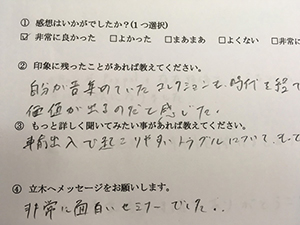 ① 感想はいかがでしたか？(１つ選択)
☑ 非常に良かった □よかった □まあまあ □よくない □非常に
② 印象に残ったことがあれば教えてください。
自分が昔集めていたコレクションも、時代を経て
価値が出るのだと感じた。
③ もっと詳しく聞いてみたい事があれば教えてください。
車輌出入で起こりやすいトラブルについて、
④ 立木へメッセージをお願いします。
非常に面白いセミナーでした。